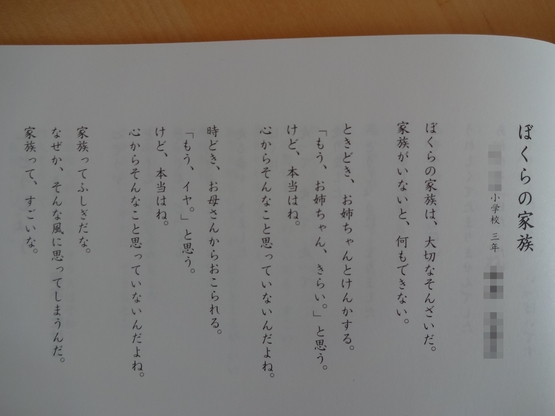 ぼくらの家族
小学校 三年
ぼくらの家族は、大切なそんざいだ。
家族がいないと、何もできない。
ときどき、お姉ちゃんとけんかする。
「もう、お姉ちゃん、きらい。」と思う。
けど、本当はね。
心からそんなこと思っていないんだよね。
時どき、お母さんからおこられる。
「もう、イヤ。」と思う。
けど、本当はね。
心からそんなこと思っていないんだよね。
家族ってふしぎだな。
なぜか、そんな風に思ってしまうんだ。
家族って、すごいな。